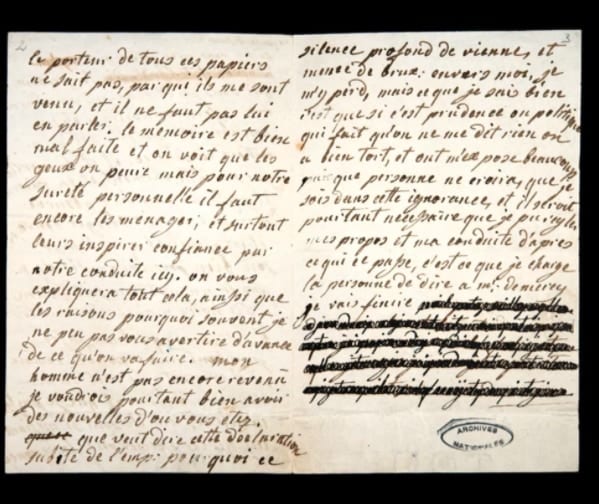 2
le porteur de tous ces papiers
ne sait pas, par qui ils me sont
venu, et il ne faut pas lui
en parler. le mémoire est bien
mal faite et on voit que les
geux on peure mais pour notre
sureté personnelle il faut
encore les menager, et surtout
leurs inspirer confiance par
notre conduite icy. on vous
expliquera tout cela, ainsi que
les raisons pourquoi souvent je
ne peu pas vous avertire d'avance
de ce qu'on va faire. mon
homme n'est pas encore revenu
je voudrois pourtant bien avoir
des nouvelles d'ou vous etez.
que veut dire cette declaration
subite de l'emp: pourquoi ce
3
silence profond de vienne, et
meme de brux: envers moi, je
m'y perd, mais ce que je sais bien
c'est que si c'est prudence ou politique
qui fait qu'on ne me dit rien on
a bien tort, et on m'expose beaucoup
puisque personne ne croira, que je
sois dans cette ignorance, et il seroit
pourtant necessaire que je puisse regler
mes propos et ma conduite d'apres
ce qui ce passe, c'est ce que je charge
la personne de dire a mr: de mercy
je vais finire
ARCHIVES
NATIONALES